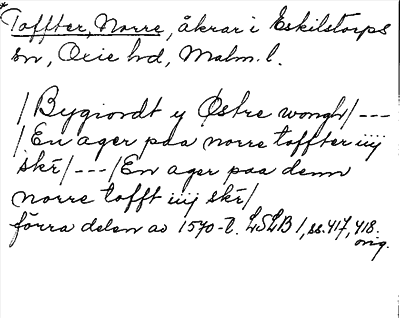 *Toffter, Norre, åkrar i Eskilstorps
sn, Oxie hd, Malm. l.
/Bygiordt y Østre wongh/---
/En ager paa norre toffter iiij
skr̄/---/En ager paa denn
norre tofft iiij skr̄/
förra delen av 1570-t. LSLB 1, ss. 417, 418.
orig.